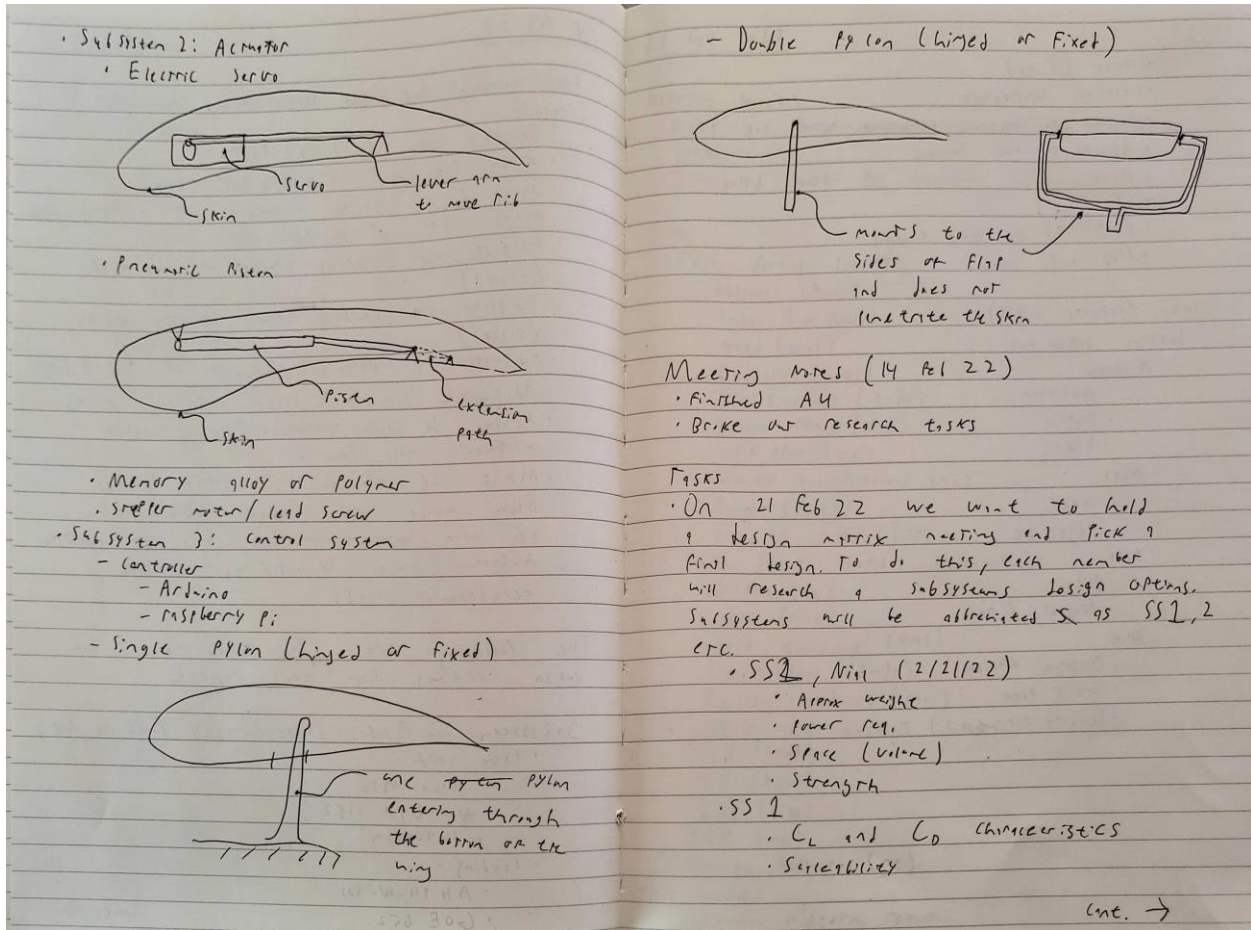 · Subsystem 2: Actuator
· Electric servo
servo
lever arm
to move rib
skin
· Pneumatic Piston
Piston
extension
path
skin
· Memory alloy or polymer
· stepper motor / lead screw
· Subsystem 3: control system
- controller
- Arduino
- raspberry pi
- Single pylon (hinged or fixed)
one pylon pylon
entering through
the bottom of the
wing
- Double Pylon (hinged or fixed)
mounts to the
sides of flap
and does not
penetrate the skin
Meeting notes (14 Feb 22)
· Finished A4
· Broke out research tasks
Tasks
· On 21 Feb 22 we want to hold
a design matrix meeting and pick a
final design. To do this, each member
will research a subsystems design options.
Subsystems will be abbreviated as SS1, 2
etc.
· SS2, (2/21/22)
· Approx weight
· power req.
· Space (volume)
· Strength
· SS 1
· CL and CD characteristics
· Scaleability
Cont. →